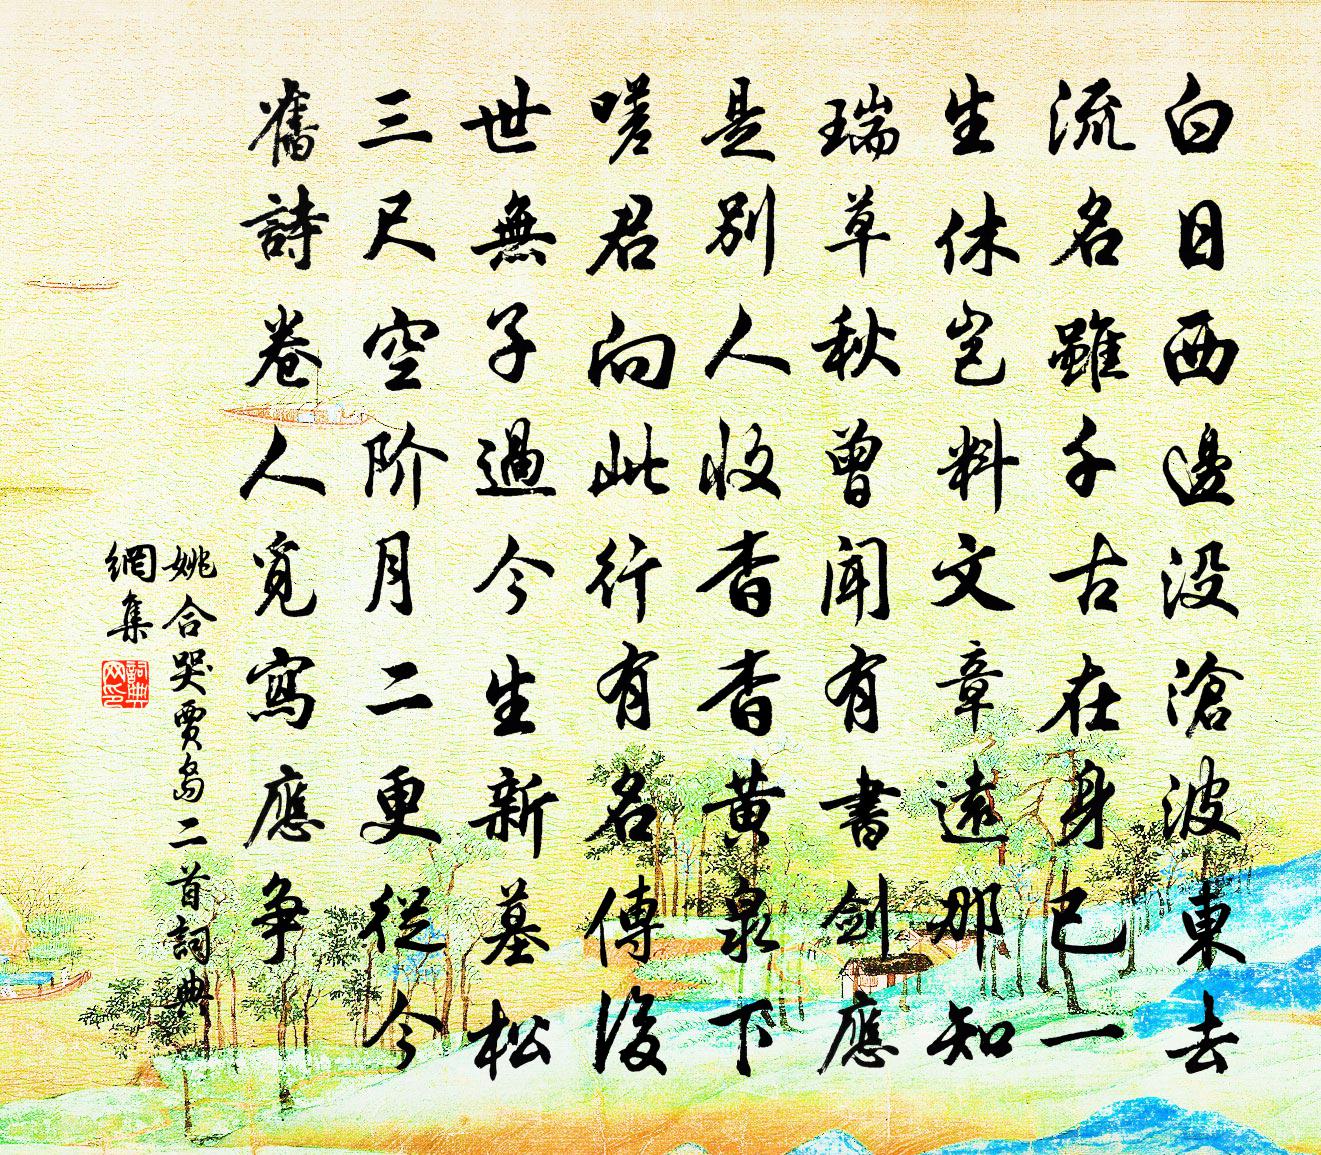 白日西邊没滄波東去
流名雖千古在身已一
生休豈料文章遠那知
瑞草秋曾聞有書劍應
是別人收杳杳黄泉下
嗟君向此行有名傳後
世無子過今生新墓松
三尺空阶月二更從今
舊詩卷人覓寫應争
姚合哭賈島二首詞典
網集
詞典
网印